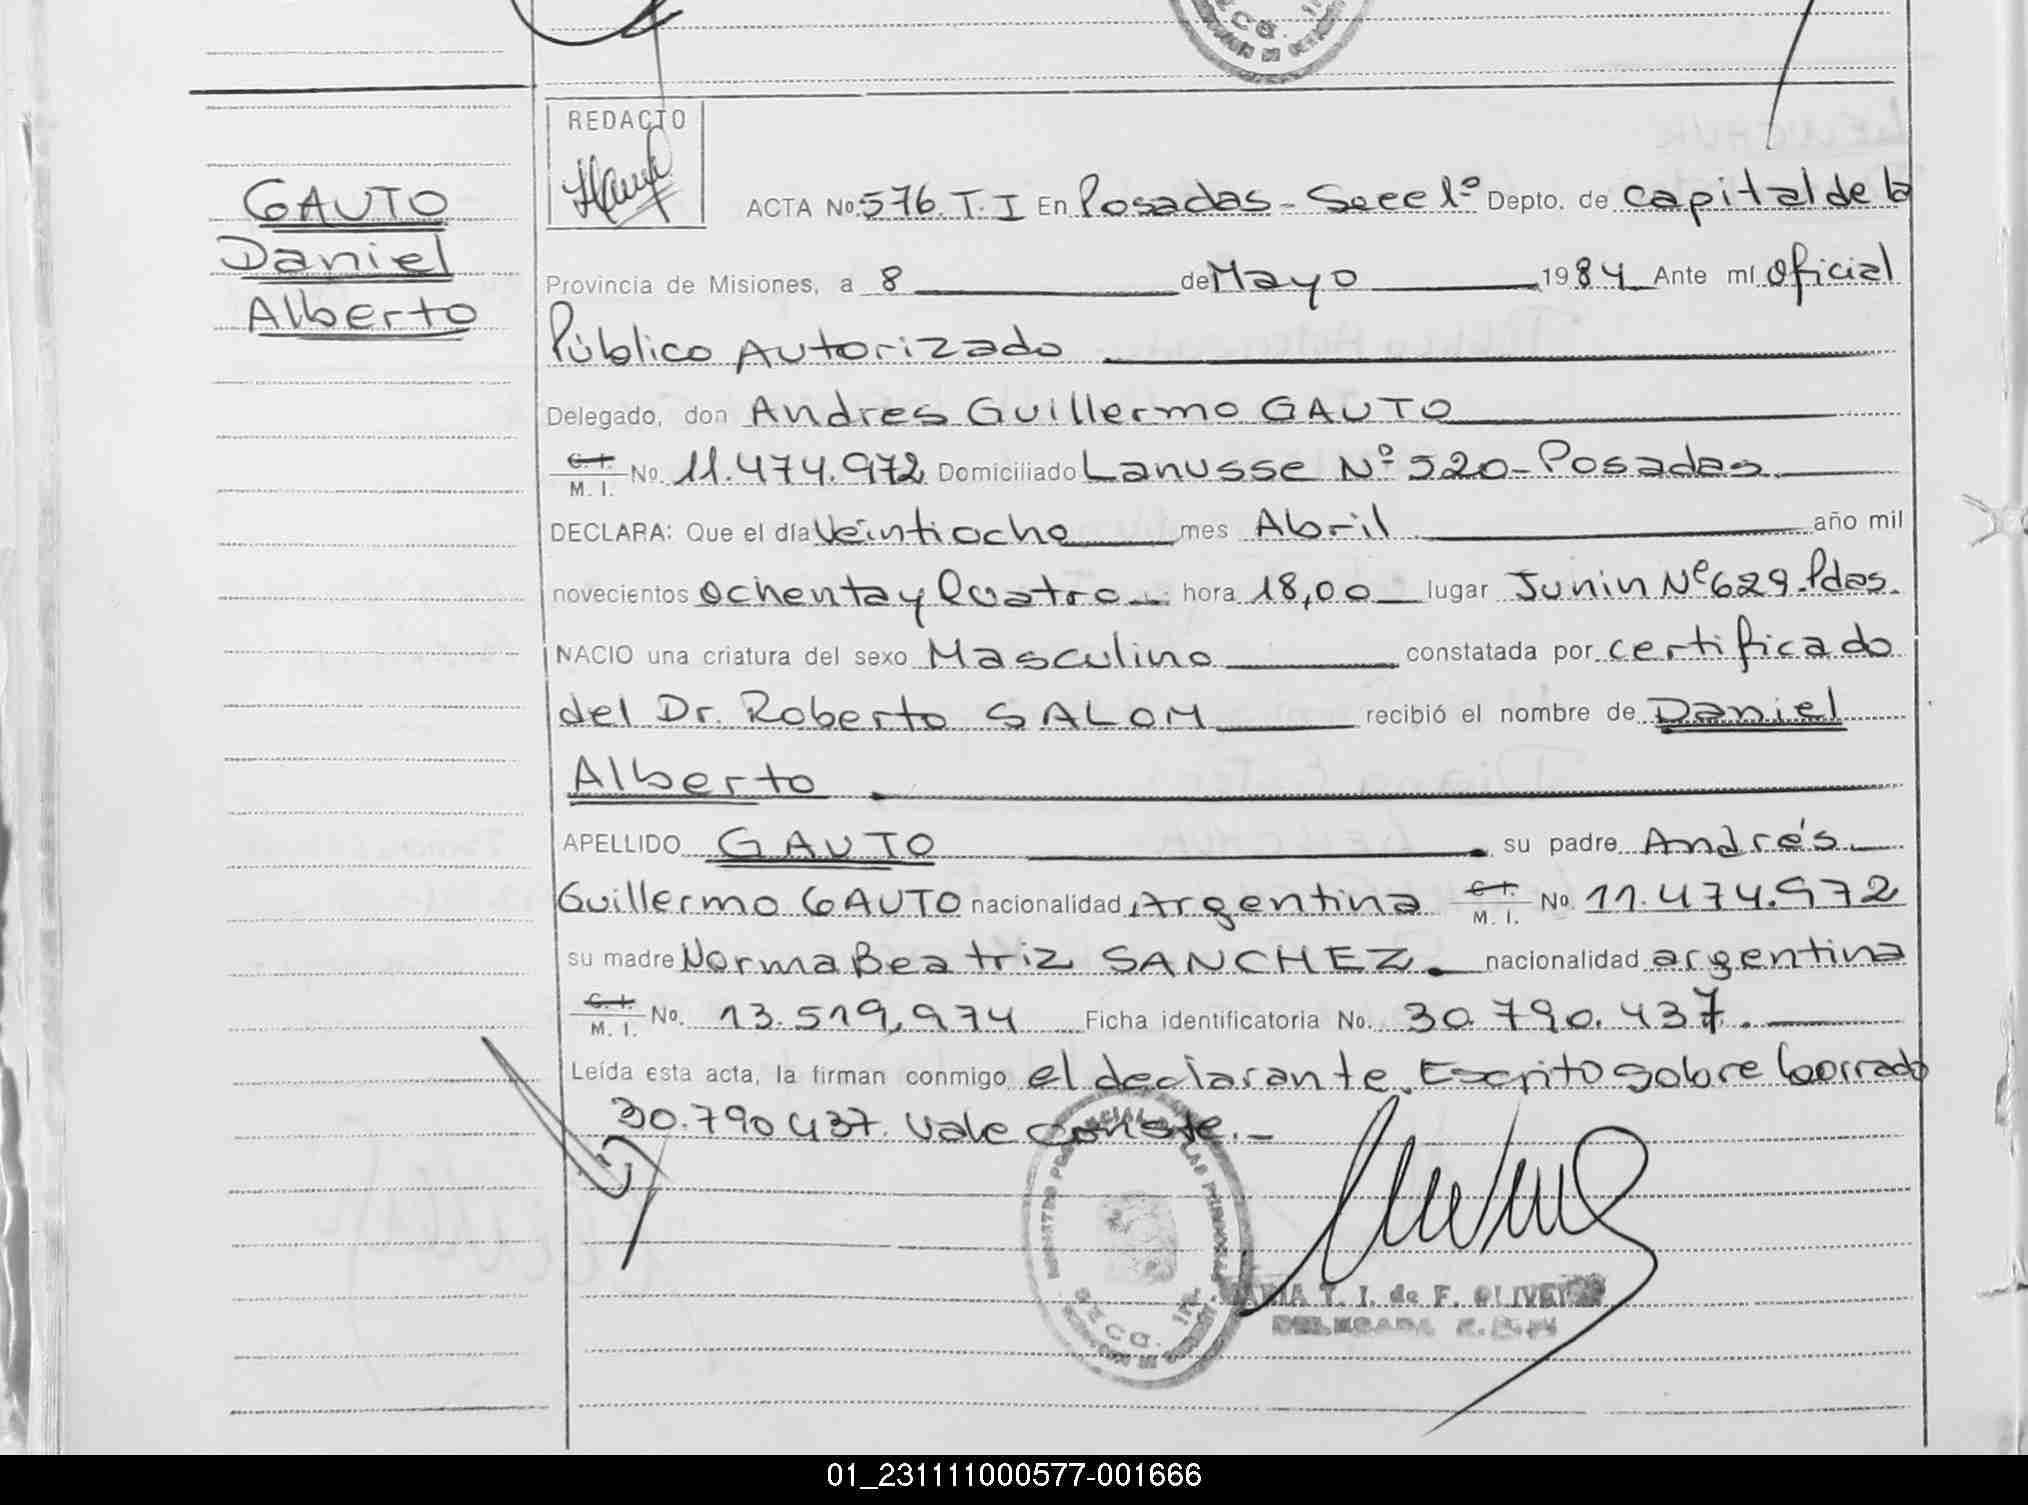 GAUTO
Daniel
Alberto
REDACTO
ACTA No. 576. T. I En Posadas - Secc 1º Depto. de Capital de la
Provincia de Misiones, a 8 de Mayo 1984 Ante mí Oficial
Público Autorizado
Delegado, don Andres Guillermo GAUTO
C. I. M. I. No. 11.474.972 Domiciliado Lanusse Nº 520 - Posadas.
DECLARA: Que el día Veintiocho mes Abril año mil
novecientos Ochenta y Cuatro hora 18,00 lugar Junin Nº 629. Pdas.
NACIO una criatura del sexo Masculino constatada por certificado
del Dr. Roberto SALOM recibió el nombre de Daniel
Alberto
APELLIDO GAUTO su padre Andrés
Guillermo GAUTO nacionalidad Argentina C. I. M. I. No 11.474.972
su madre Norma Beatriz SANCHEZ. nacionalidad argentina
C. I. M. I. No. 13.519.974 Ficha identificatoria No. 30.790.437.
Leída esta acta, la firman conmigo el declarante. Escrito sobre borrado
30.790 437. Vale conste. -
T. I. de F. OLIVE
DELEGADA
01_231111000577-001666